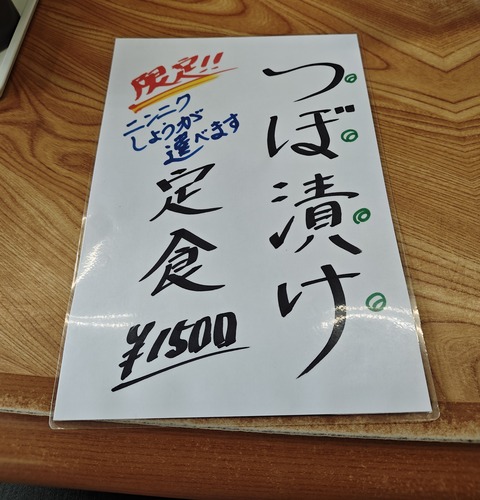 つぼ漬け
限定!!
ニンニク
しょうが
選べます
定食
¥1500